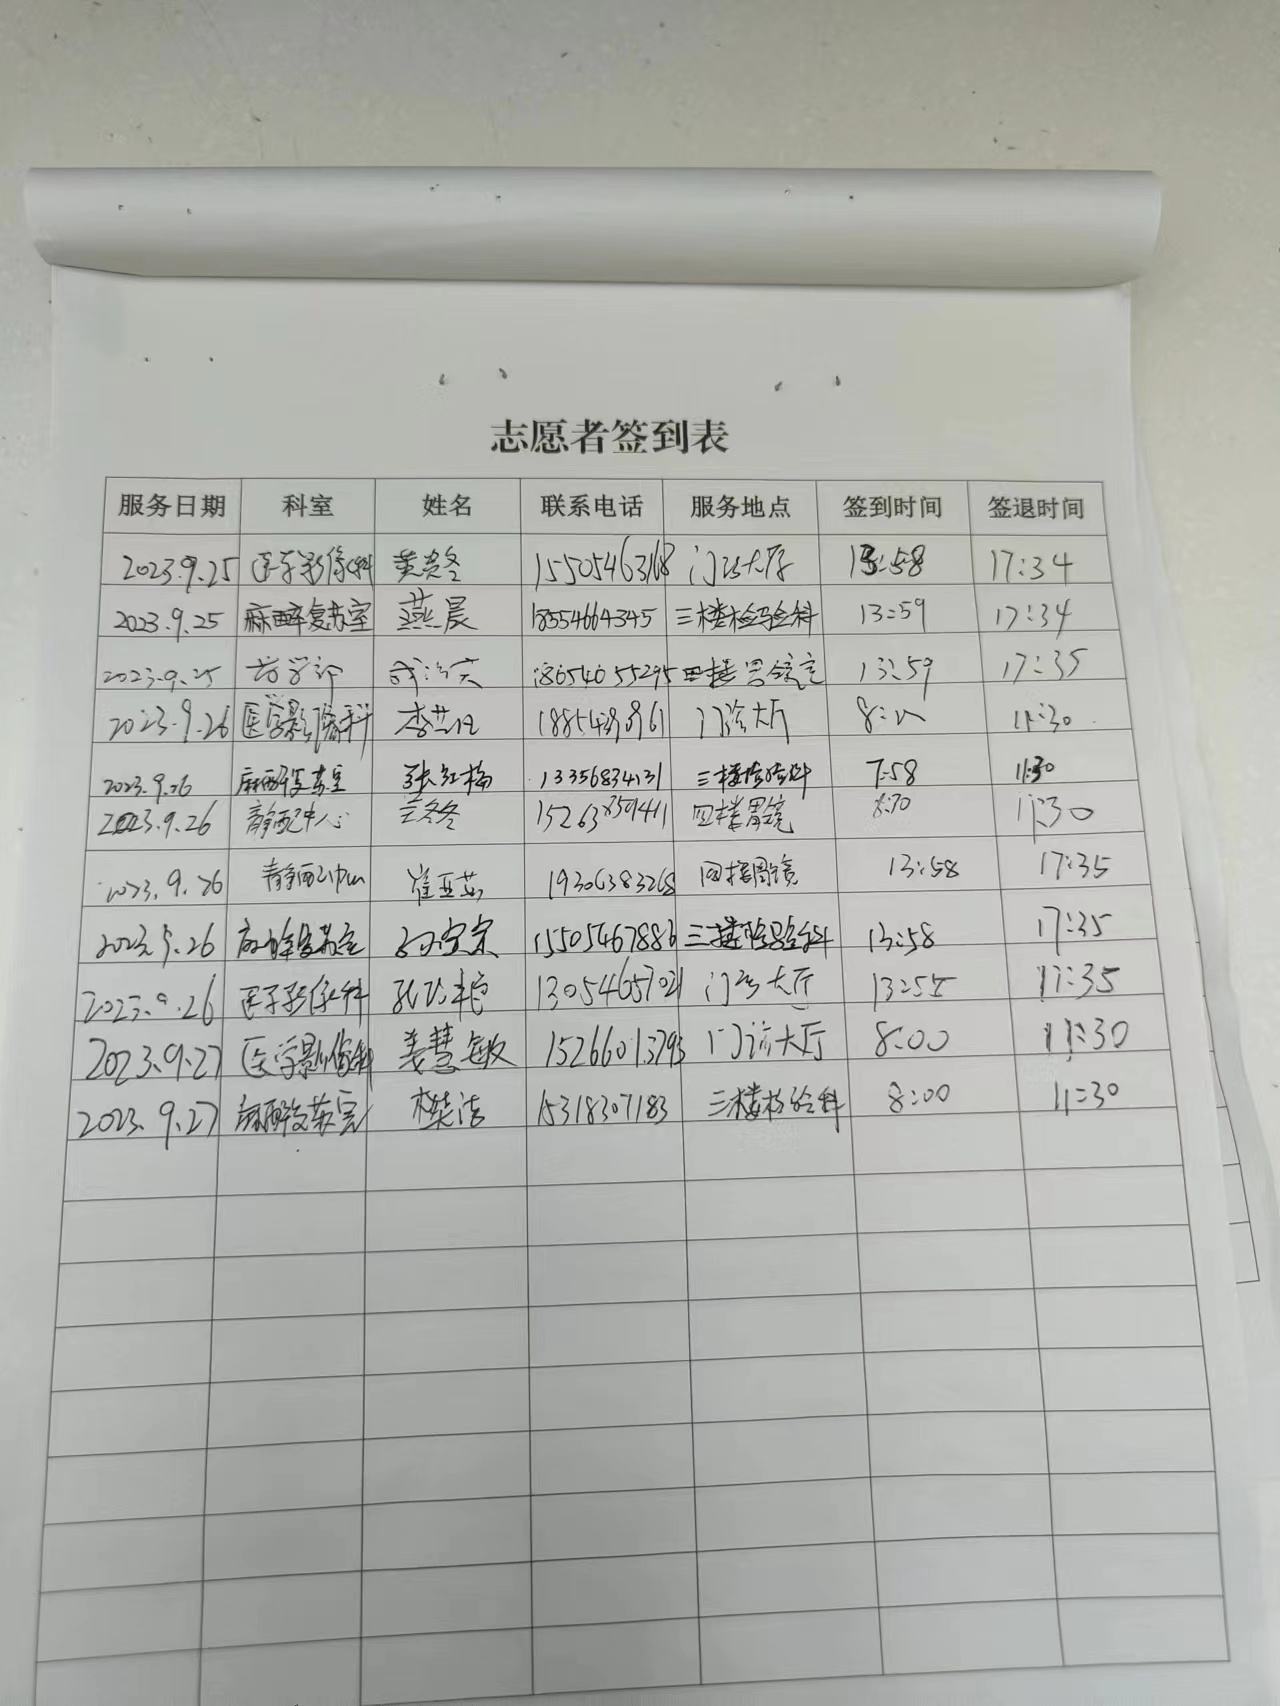 志愿者签到表
服务日期 科室 姓名 联系电话 服务地点 签到时间 签退时间
2023.9.25 医学影像科 黄贵冬 15505463168 门诊大厅 13:58 17:34
2023.9.25 麻醉复苏室 燕晨 18554664345 三楼检验科 13:59 17:34
2023.9.25 18654055295 四楼胃镜室 13:59 17:35
2023.9.26 医学影像科 门诊大厅 11:30
2023.9.26 麻醉复苏室 张红梅 13356834131 三楼检验科 7:58 11:30
2023.9.26 静配中心 兰冬冬 15263859411 四楼胃镜 11:30
2023.9.26 静配中心 崔亚茹 19306383268 四楼胃镜 13:58 17:35
2023.9.26 麻醉复苏室 15505467886 三楼检验科 13:58 17:35
2023.9.26 医学影像科 13054657021 门诊大厅 13:55 17:35
2023.9.27 医学影像科 姜慧敏 15266013795 门诊大厅 8:00 11:30
2023.9.27 麻醉复苏室 樊洁 15318307183 三楼检验科 8:00 11:30